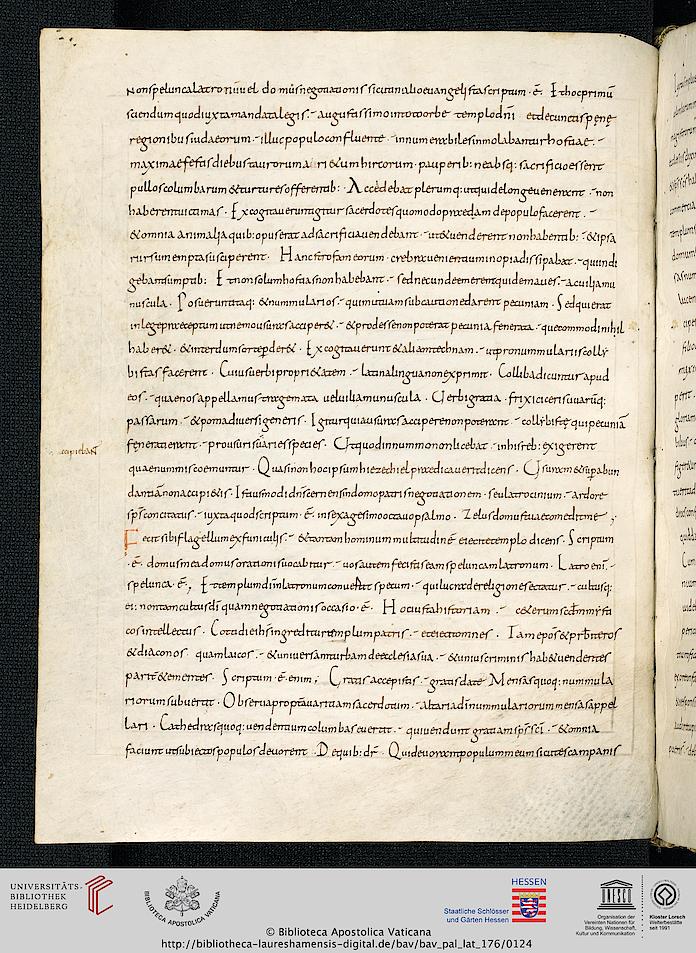 non spelunca latronū uel domus negotiationis sicut in alio euangelista scriptum · ē · Et hoc primū
sciendum quod iuxta mandata legis · augustissimo in toto orbe templo dn̄i et de cunctis pene
regionibus iudaeorum · illuc populo confluente · innumerabiles immolabantur hostiae ·
maxime festis diebus taurorum arietū & hircorum · pauperib: ne absq: sacrificio essent
pullos columbarum & turtures offerentib: · Accedebat plerumq: ut qui de longe uenerant · non
haberent uictimas · Excogitauerunt igitur sacerdotes quomodo praedam de populo facerent ·
& omnia animalia quib: opus erat ad sacrificia uendebant · ut & uenderent non habentib: · & ipsi
rursum empta susciperent · Hanc stropham eorum · crebra uenientium inopia dissipabat · qui indi
gebant sumptib: Et non solum hostias non habebant · sed nec unde emerent quidem aues · ac uilia mu
nuscula · Posuerunt itaq: & nummularios · qui mutuam sub cautione darent pecuniam · Sed quia erat
in lege praeceptum ut nemo usuras acciperet · & prodesse non poterat pecunia fenerata · quae commodi nihil
haberet · & interdum sorte perderet · Excogitauerunt & aliam technam · ut pro nummulariis colly
bistas facerent · Cuius uerbi proprietatem · latina lingua non exprimit · Colliba dicuntur apud
eos · quae nos appellamus tragemata uel uilia munuscula · Uerbi gratia · frixi ciceris uuarūq:
passarum · & poma diuersi generis · Igitur quia usuras accipere non poterant · collybistę qui pecuniā
fenerati erant · pro usuris uarias species · Ut quod in nummo non licebat · in his reb: exigerent
accipiebant
quae nummis coemuntur · Quasi non hoc ipsum hiezechiel praedicauerit dicens · Usuram & superabun
dantiā non accipietis · Istiusmodi dn̄s cernens in domo patris negotiationem · seu latrocinium · ardore
sp̄s concitatus · iuxta quod scriptum · ē · in sexagesimo octauo psalmo · Zelus domus tuae comedit me ;
Fecit sibi flagellum ex funiculis · & tantam hominum multitudinē eiecit e templo dicens · Scriptum
· ē · domus mea domus orationis uocabitur · uos autem fecistis eam speluncam latronum · Latro enī ·
spelunca · ē ; Et templum dī in latronum conuertit specum · qui lucra de religione sectatur · cultusq:
ei: non tam cultus dī quam negotiationis occasio · ē · Hoc iuxta historiam · ceterum secdm mysti
cos intellectus · Cotidie ih̄s ingreditur templum patris · et eiecit omnes · Tam epōs & prb̄iteros
& diaconos quam laicos · & uniuersam turbam de ecclesia sua · & unius criminis habet uendentes
pariter & ementes · Scriptum · ē · enim ; Gratis accepistis · gratis date Mensas quoq: nummula
riorum subuertit · Obserua propter auaritiam sacerdotum · altaria dī nummulariorum mensas appel
lari · Cathedras quoq: uendentium columbas euertit · qui uendunt gratiam sp̄s sc̄i · & omnia
faciunt ut subiectos populos deuorent · De quib: dr̄ · Qui deuorant populum meum sicut escam panis
UNIVERSITÄTS-
BIBLIOTHEK
HEIDELBERG
BIBLIOTECA APOSTOLICA VATICANA
© Biblioteca Apostolica Vaticana
http://bibliotheca-laureshamensis-digital.de/bav/bav_pal_lat_176/0124
HESSEN
Staatliche Schlösser
und Gärten Hessen
UNESCO
Organisation der
Vereinten Nationen für
Bildung, Wissenschaft,
Kultur und Kommunikation
Kloster Lorsch
Welterbestätte
seit 1991